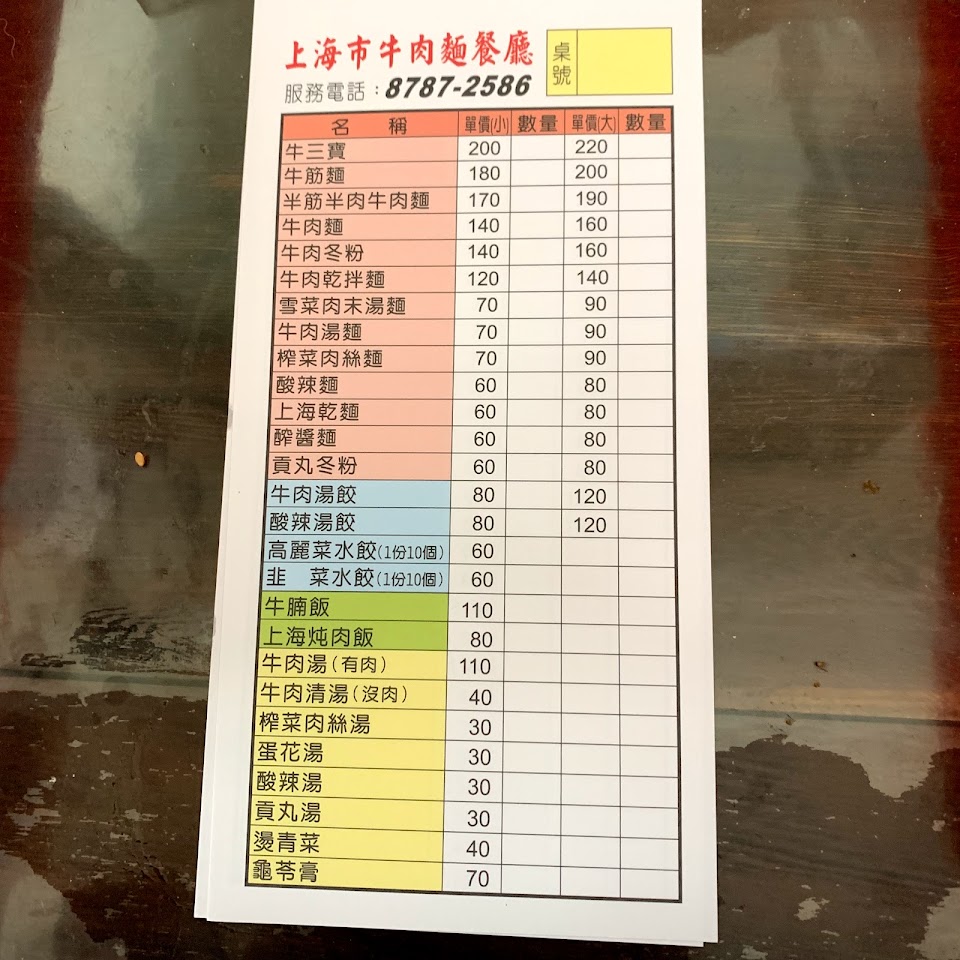 上海市牛肉麵餐廳
服務電話：8787-2586
桌號
名 稱 單價(小) 數量 單價(大) 數量
牛三寶 200 220
牛筋麵 180 200
半筋半肉牛肉麵 170 190
牛肉麵 140 160
牛肉冬粉 140 160
牛肉乾拌麵 120 140
雪菜肉末湯麵 70 90
牛肉湯麵 70 90
榨菜肉絲麵 70 90
酸辣麵 60 80
上海乾麵 60 80
醡醬麵 60 80
貢丸冬粉 60 80
牛肉湯餃 80 120
酸辣湯餃 80 120
高麗菜水餃(1份10個) 60
韭 菜水餃(1份10個) 60
牛腩飯 110
上海炖肉飯 80
牛肉湯(有肉) 110
牛肉清湯(沒肉) 40
榨菜肉絲湯 30
蛋花湯 30
酸辣湯 30
貢丸湯 30
燙青菜 40
龜苓膏 70